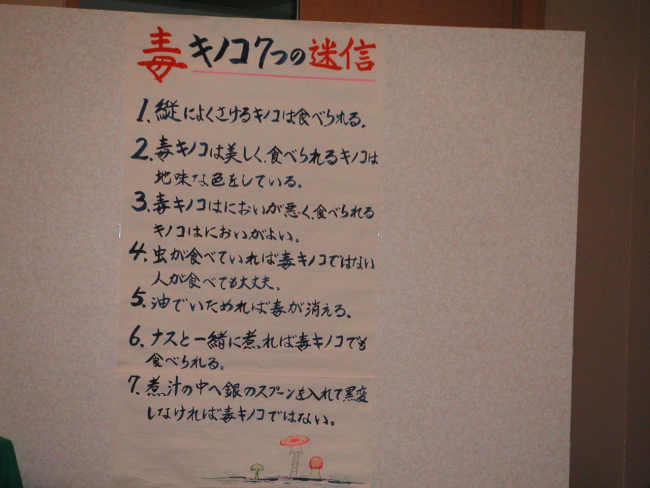 毒キノコ7つの迷信
1. 縦によくさけるキノコは食べられる。
2. 毒キノコは美しく、食べられるキノコは
地味な色をしている。
3. 毒キノコはにおいが悪く、食べられる
キノコはにおいがよい。
4. 虫が食べていれば毒キノコではない
人が食べても大丈夫。
5. 油でいためれば毒が消える。
6. ナスと一緒に煮れば毒キノコでも
食べられる。
7. 煮汁の中へ銀のスプーンを入れて黒変
しなければ毒キノコではない。